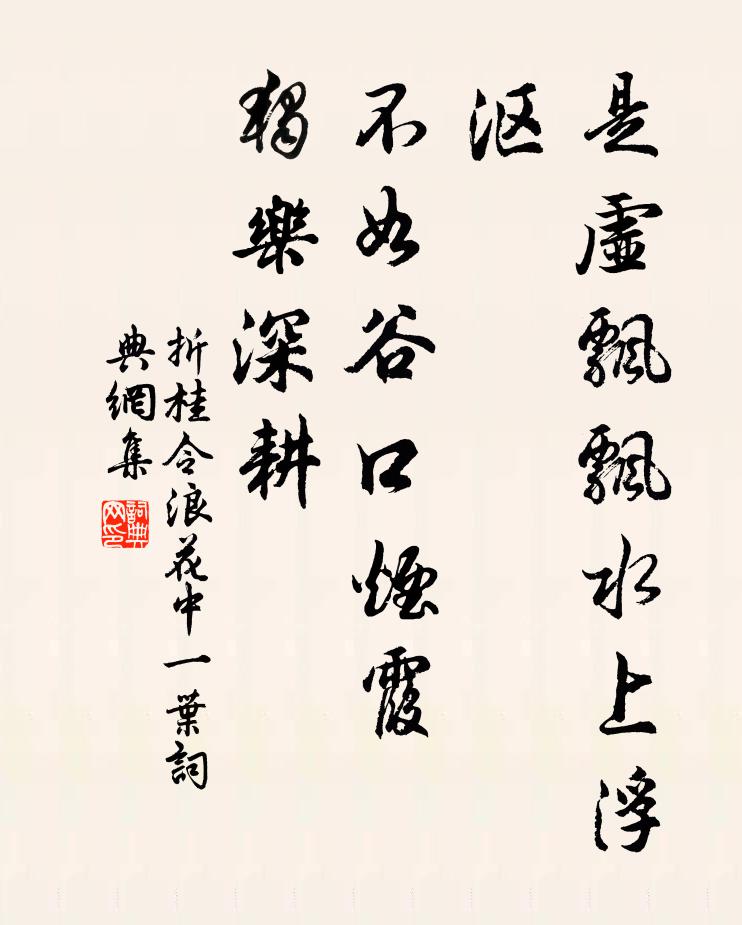 是虛飄飄水上浮
沤
不如谷口煙霞
獨樂深耕
折桂令浪花中一葉詞
典網集
詞典
网印